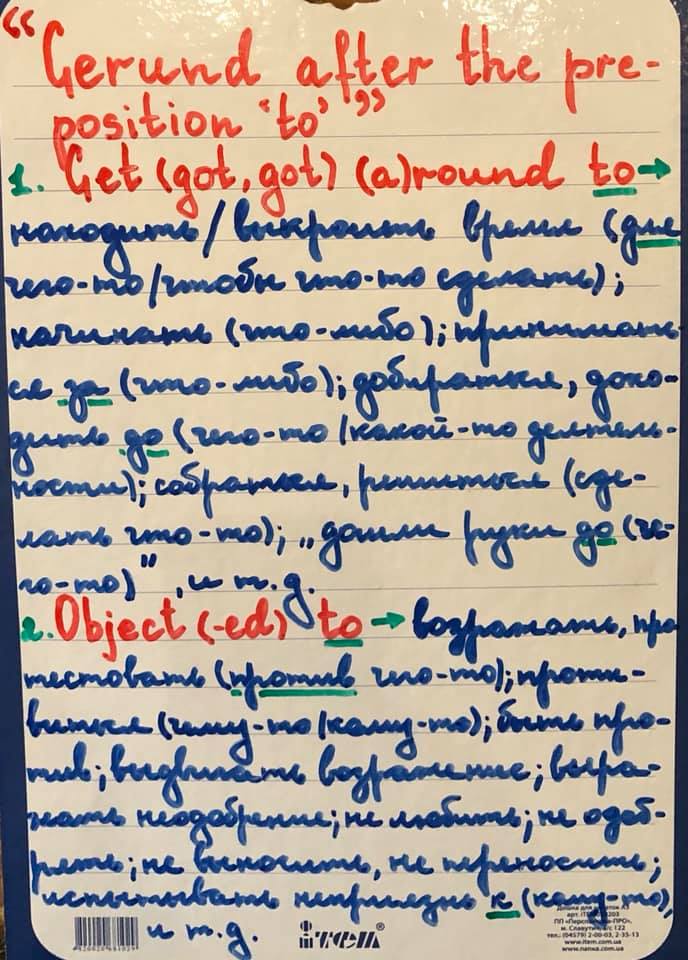 “Gerund after the pre-
position ‘to’”
1. Get (got, got) (a)round to →
находить/выкроить время (для
чего-то/чтобы что-то сделать);
начинать (что-либо); принимать-
ся за (что-либо); добираться, дохо-
дить до (чего-то/какой-то деятель-
ности); собраться, решиться (сде-
лать что-то); „дошли руки до (че-
го-то)”, и т.д.
2. Object (-ed) to → возражать, про
тестовать (против чего-то); проти-
виться (чему-то/кому-то); быть про-
тив; выдвигать возражение; выра-
жать неодобрение; не любить; не одоб-
рять; не выносить, не переносить;
испытывать неприязнь к (кому-то),
и т.д.
item®
ПП «Перспектива-ПРО»,
м. Славутич, а/с 122
тел.: (04579) 2-00-03, 2-35-13
www.item.com.ua
www.папка.com.ua